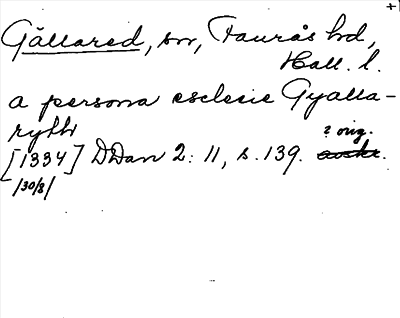 +
Gällared, sn, Faurås hd,
Hall. l.
a persona ecclesie Gyalla-
rythr
? orig.
[1334] DDan 2: 11, s. 139. avskr.
/30/8/